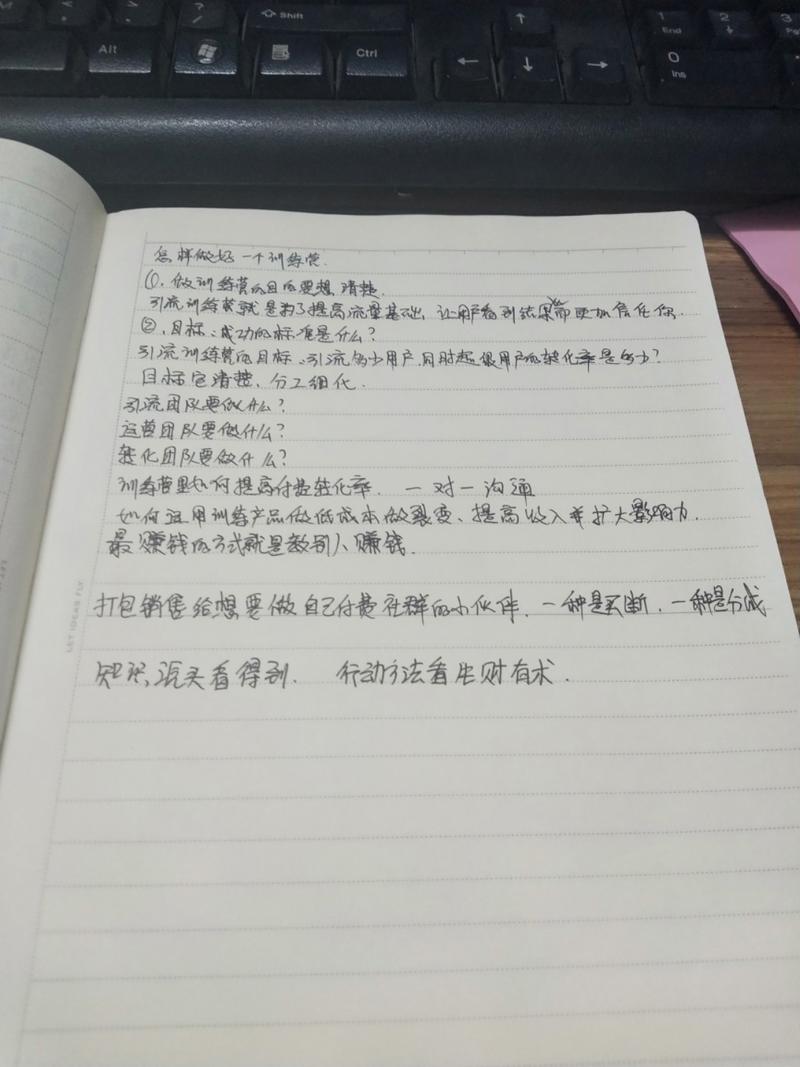 Shift
Alt
Ctrl
1
End
2
3
0
Ins
怎样做好一个训练营
①、做训练营的目的要想清楚.
引流训练营就是为了提高流量基础,让用户看到结果而更加信任你.
②、目标:成功的标准是什么?
引流训练营的目标:引流多少用户,同时超级用户的转化率是多少?
目标定清楚、分工细化.
引流团队要做什么?
运营团队要做什么?
转化团队要做什么?
训练营里如何提高付费转化率. 一对一沟通
如何运用训练产品做低成本做裂变、提高收入并扩大影响力.
最赚钱的方式就是教别人赚钱.
打包销售给想要做自己付费社群的小伙伴,一种是买断,一种是分成
知识源头看得到. 行动方法看生财有术.
LET IDEAS FLY